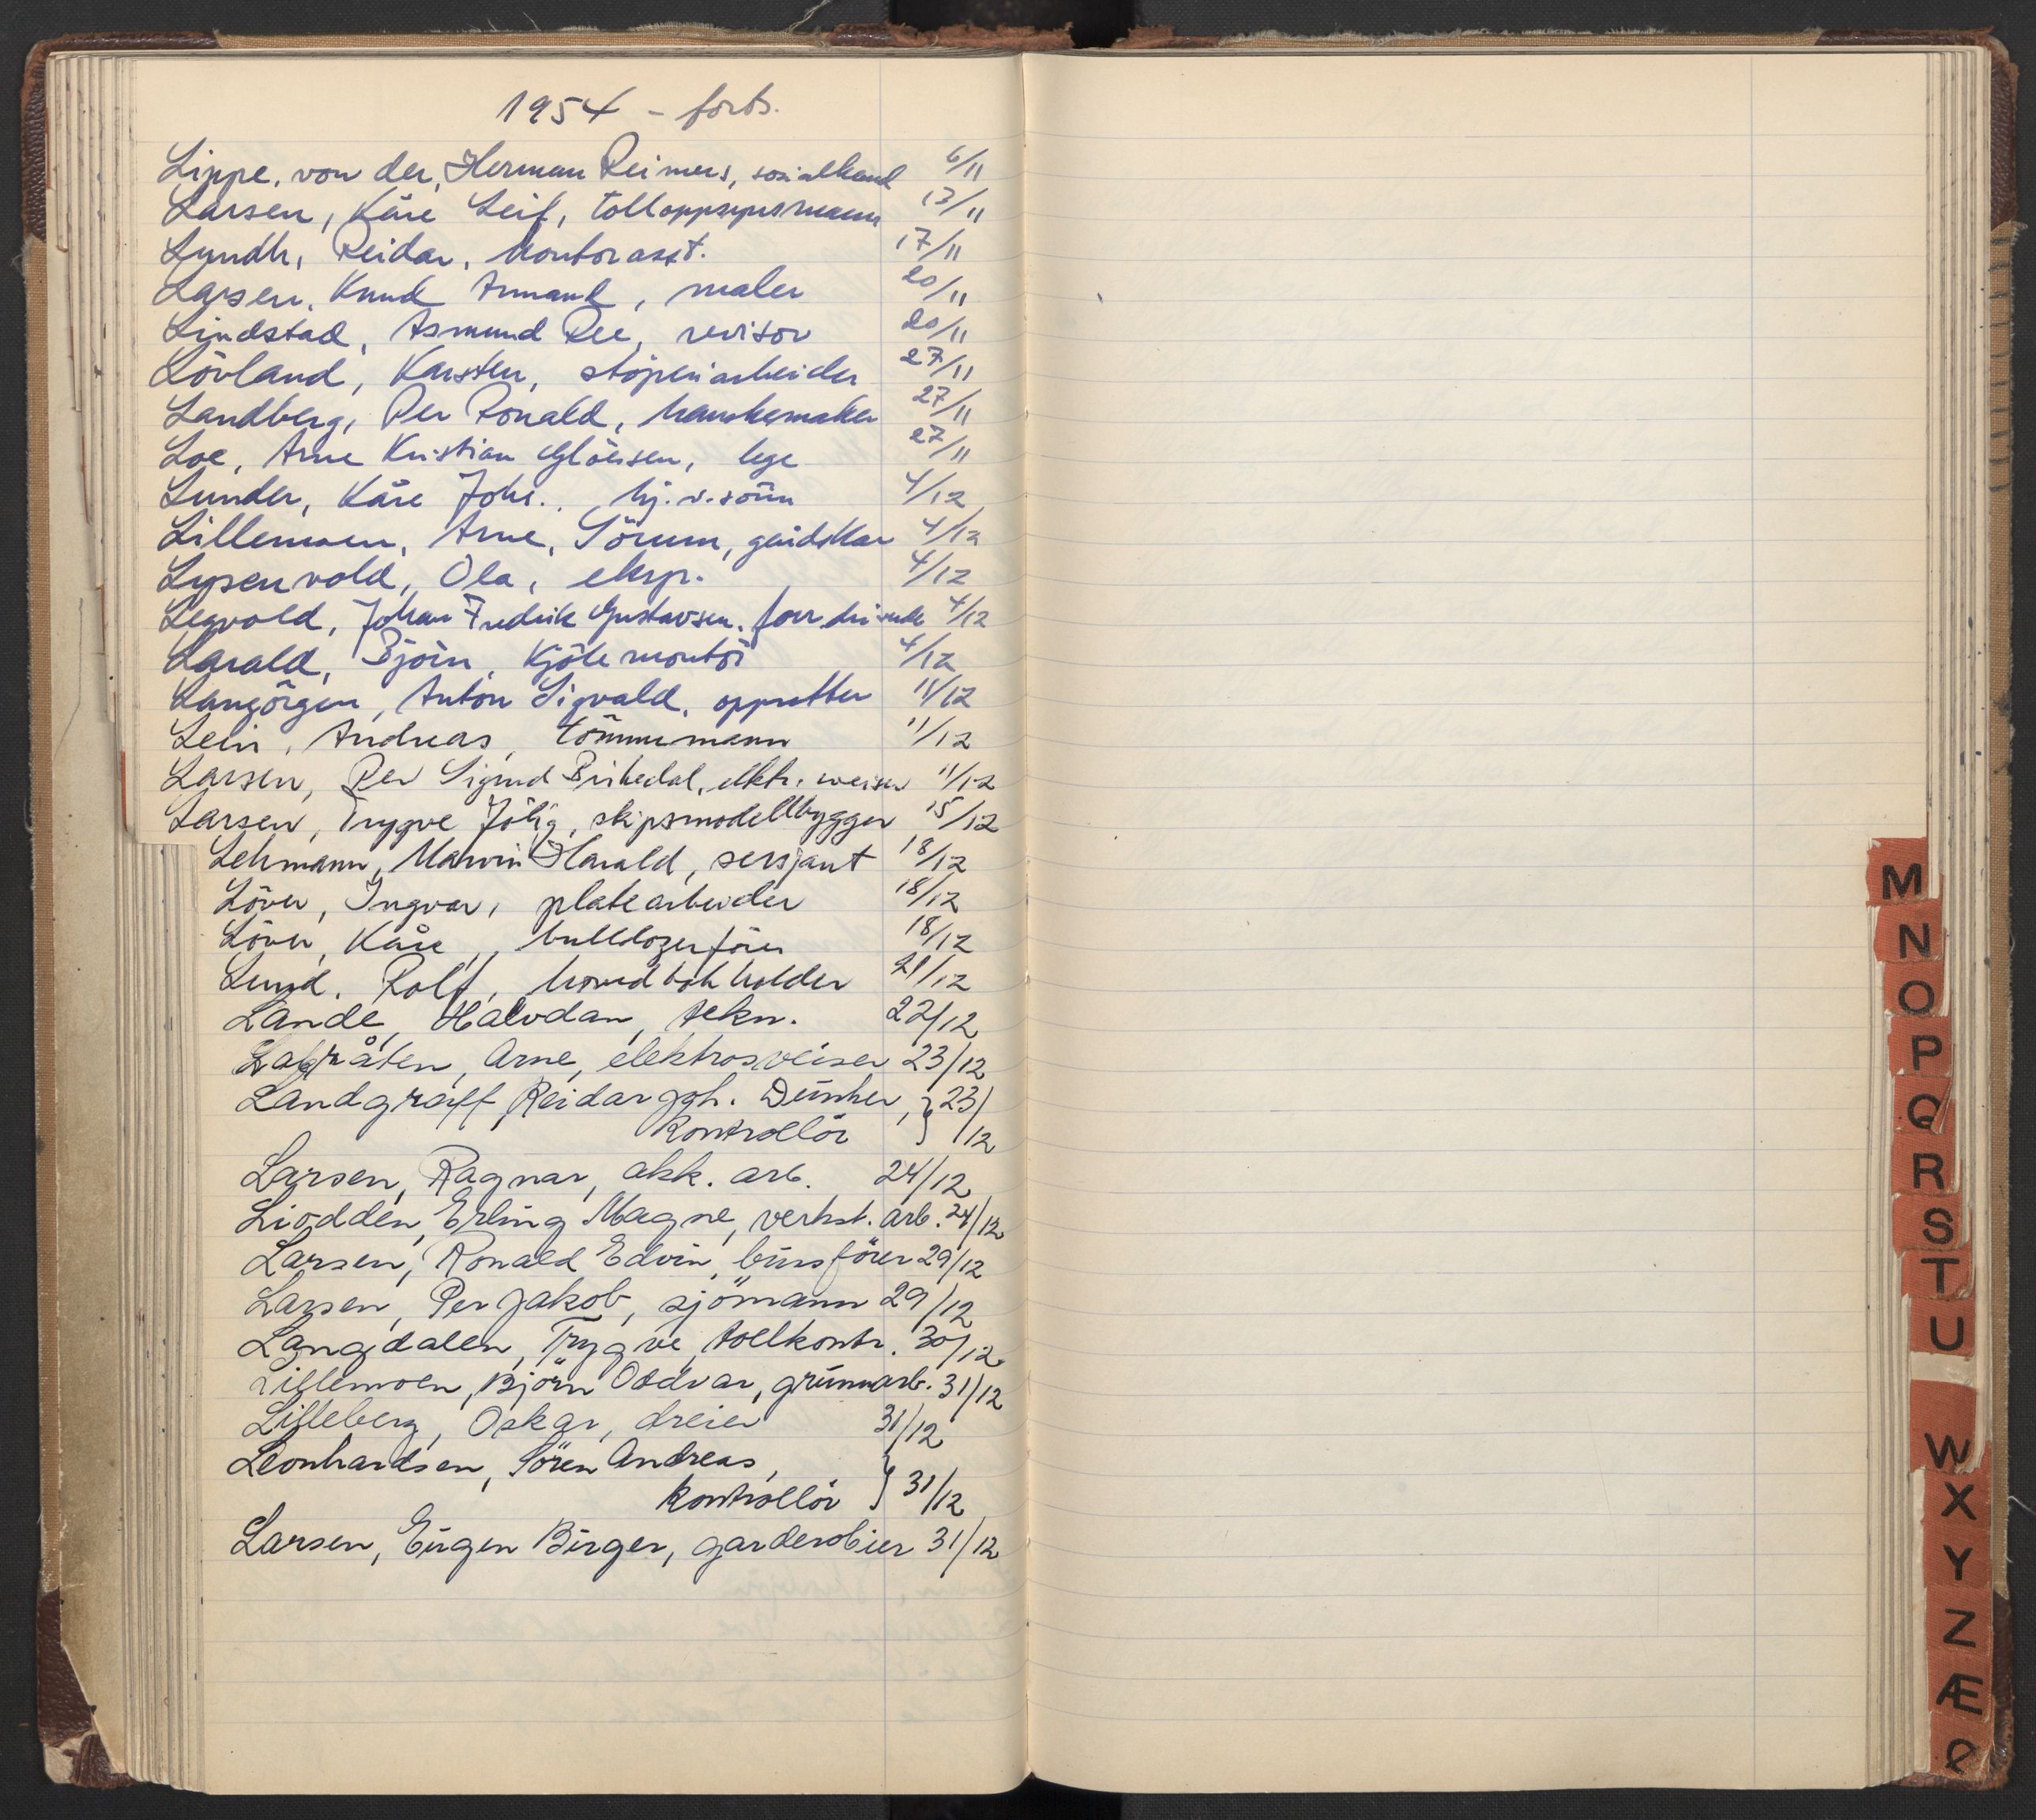 1954 - forts.
Lippe, von der, Herman Reimers, sosialkand 6/11
Larsen, Kåre Leif, tolloppsynsmann 13/11
Lyndh, Reidar, kontorasst. 17/11
Larsen, Knud Armand, maler 20/11
Lindstad, Asmund Ree, revisor 20/11
Lövland, Karsten, stöperiarbeider 27/11
Landberg, Per Ronald, hanskemaker 27/11
Loe, Arne Kristian Glöersen, lege 27/11
Lunder, Kåre Johs., hj.v.sönn 4/12
Lillemoen, Arne, Sörum, gårdskar 4/12
Lysenvold, Ola, eksp. 4/12
Legvold, Johan Fredrik Gustavsen, forr.drivende 4/12
Larald, Björn, Kjölemontör 4/12
Langörgen, Anton Sigvald, oppsetter 11/12
Lein, Andreas, tömmermann 11/12
Larsen, Per Sigurd elektr. sveiser 11/12
Larsen, Trygve skipsmodellbygger 15/12
Lehmann, Marvin Harald, sersjant 18/12
Löver, Ingvar, platearbeider 18/12
Löver, Kåre, bulldozerförer 18/12
Lund, Rolf, hovedbokholder 21/12
Lande, Halvdan, tekn. 22/12
Arne, elektrosveiser 23/12
Landgraff, Reidar Joh. Dunker, } 23/
Kontrollör } 12
Larsen, Ragnar, akk. arb. 24/12
Liodden, Erling Magne, verkst. arb. 24/12
Larsen, Ronald Edvin, bussförer 29/12
Larsen, Per Jakob, sjömann 29/12
Langdalen, Trygve, tollkontr. 30/12
Lillemoen, Björn Oddvar, grunnarb. 31/12
Lilleberg, Oskar, dreier 31/12
Leonhardsen, Sören Andreas,
Kontrollör } 31/12
Larsen, Eugen Birger, garderobier 31/12
M
N
O
P
Q
R
S
T
U
W
X
Y
Z
Æ